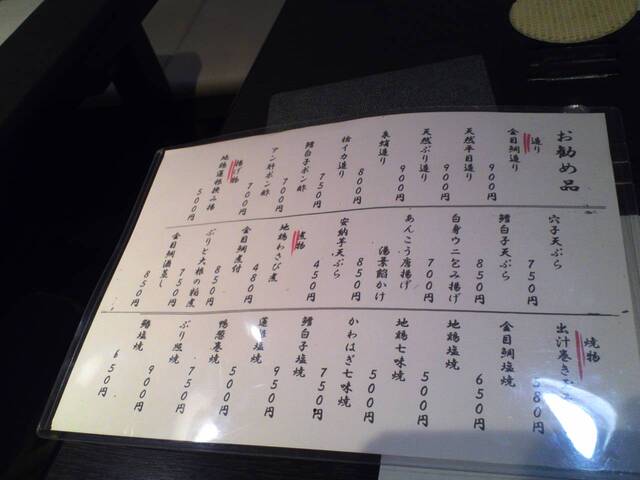 お勧め品
造り
金目鯛造り
900円
天然平目造り
900円
天然ぶり造り
900円
800円
鱈白子ポン酢
750円
アン肝ポン酢
700円
揚げ物
地鶏蓮根挟み揚
500円
穴子天ぷら
750円
鱈白子天ぷら
850円
白身ウニ包み揚げ
700円
あんこう唐揚げ
湯葉餡かけ
850円
安納芋天ぷら
450円
煮物
地鶏わさび煮
480円
金目鯛煮付
850円
ぶりと大根の粕煮
750円
金目鯛酒蒸し
850円
焼物
出汁巻き
580円
金目鯛塩焼
650円
地鶏塩焼
500円
地鶏七味焼
500円
かわはぎ七味焼
750円
鱈白子塩焼
950円
塩焼
500円
鴨葱巻焼
750円
ぶり照焼
900円
塩焼
650円